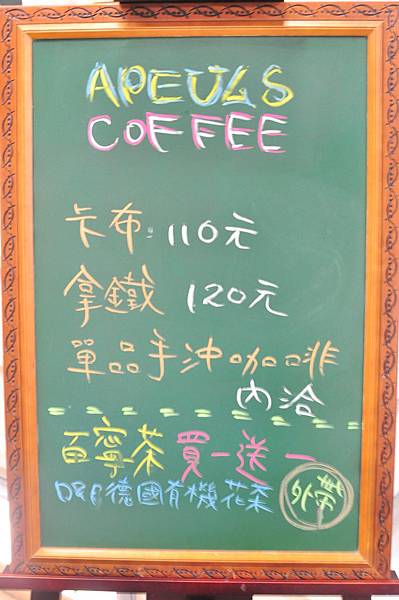 APEULS
COFFEE
卡布:110元
拿鐵 120元
單品手沖咖啡
內洽
百寧茶 買一送一
D&B德國有機花茶 外帶